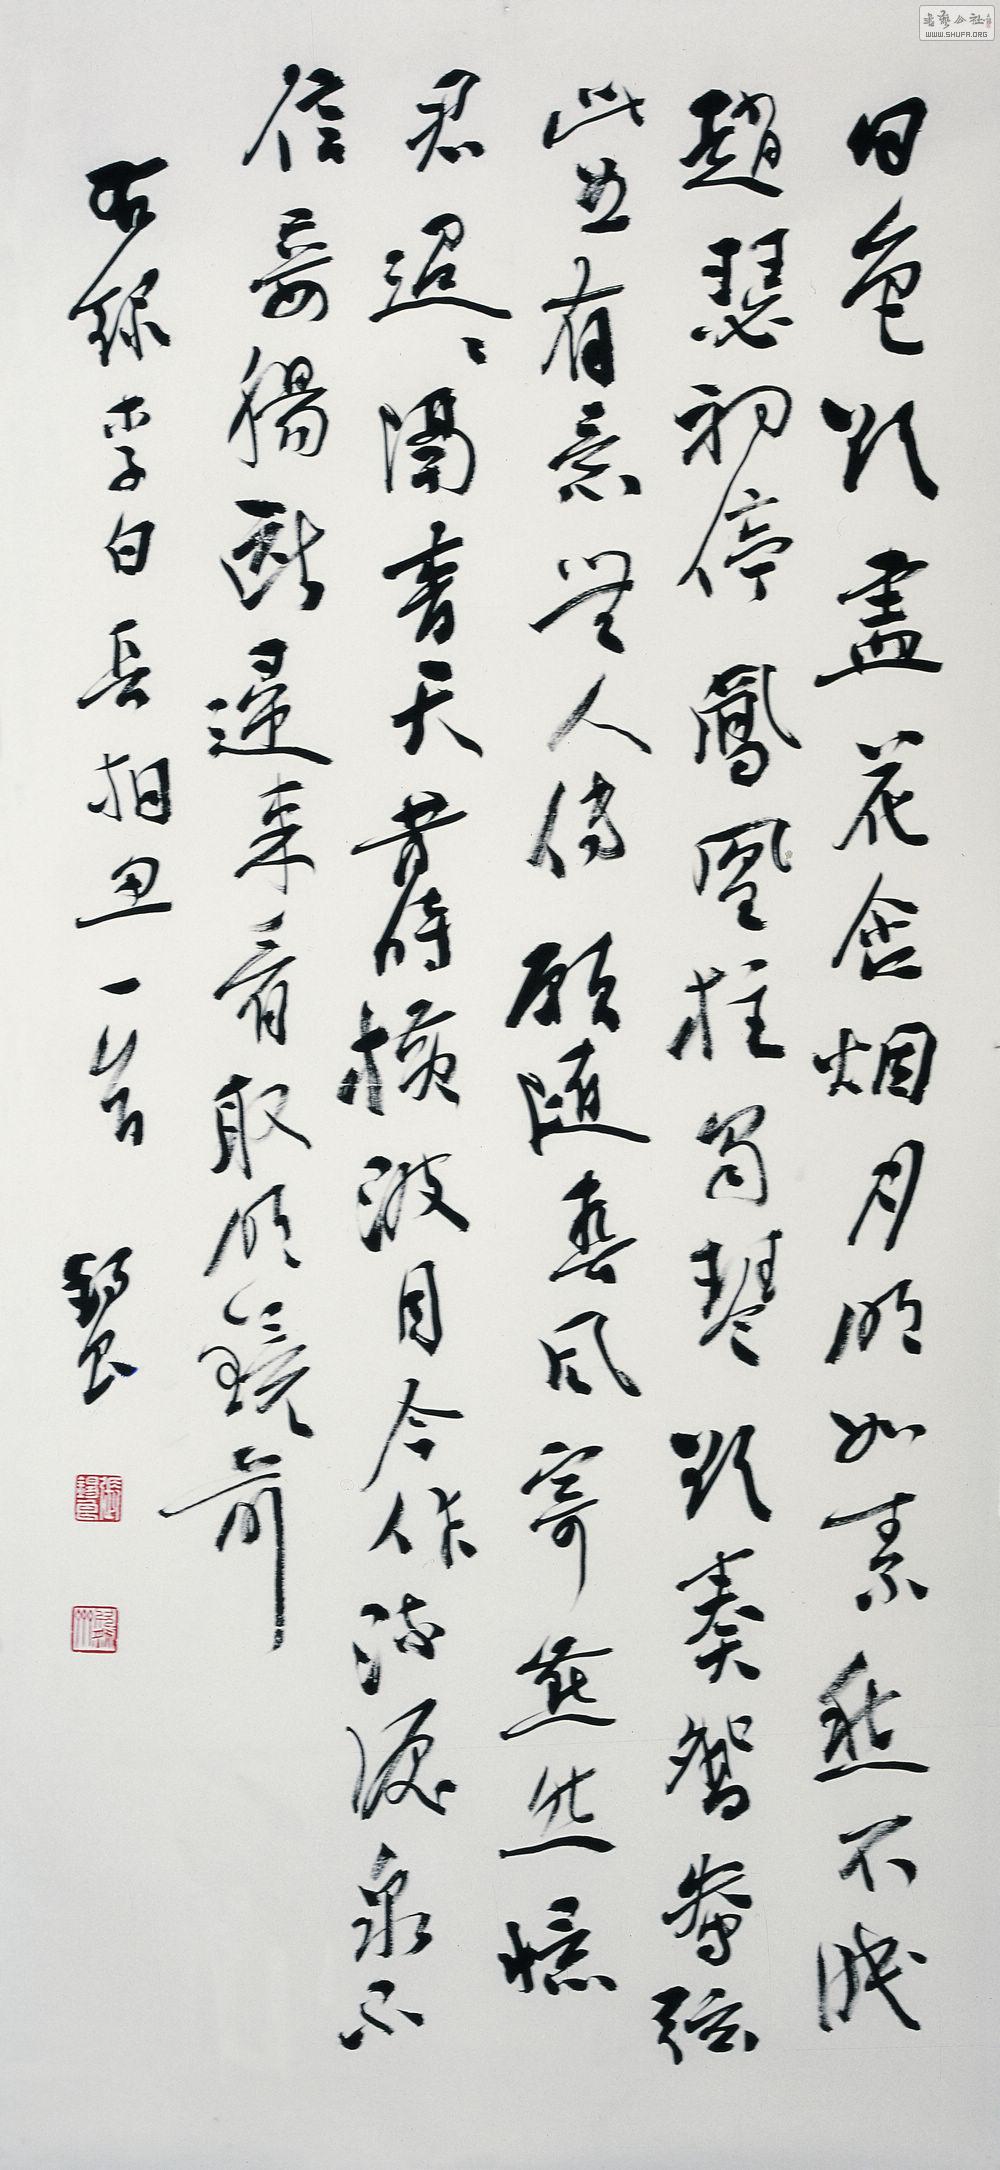 日色欲盡花含烟月明如素愁不眠
趙瑟初停鳳凰柱蜀琴欲奏鴛鴦弦
此曲有意無人傳願隨春風寄燕然憶
君迢〻隔青天昔時橫波目今作流淚泉不
信妾腸斷歸來看取明鏡前
右錄李白長相思一首
WWW.SHUFA.ORG